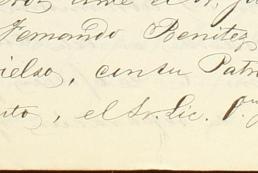 ante el Sr.
Fernando Benitez
ielso, con su Patr
uto, el Sr. Lic. P.